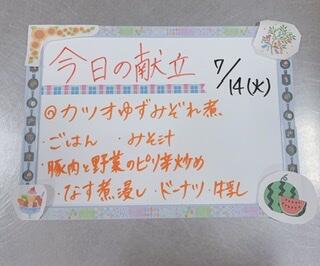 今日の献立
7/14(火)
◎カツオゆずみぞれ煮
・ごはん ・みそ汁
・豚肉と野菜のピリ辛炒め
・なす煮浸し・ドーナツ・牛乳